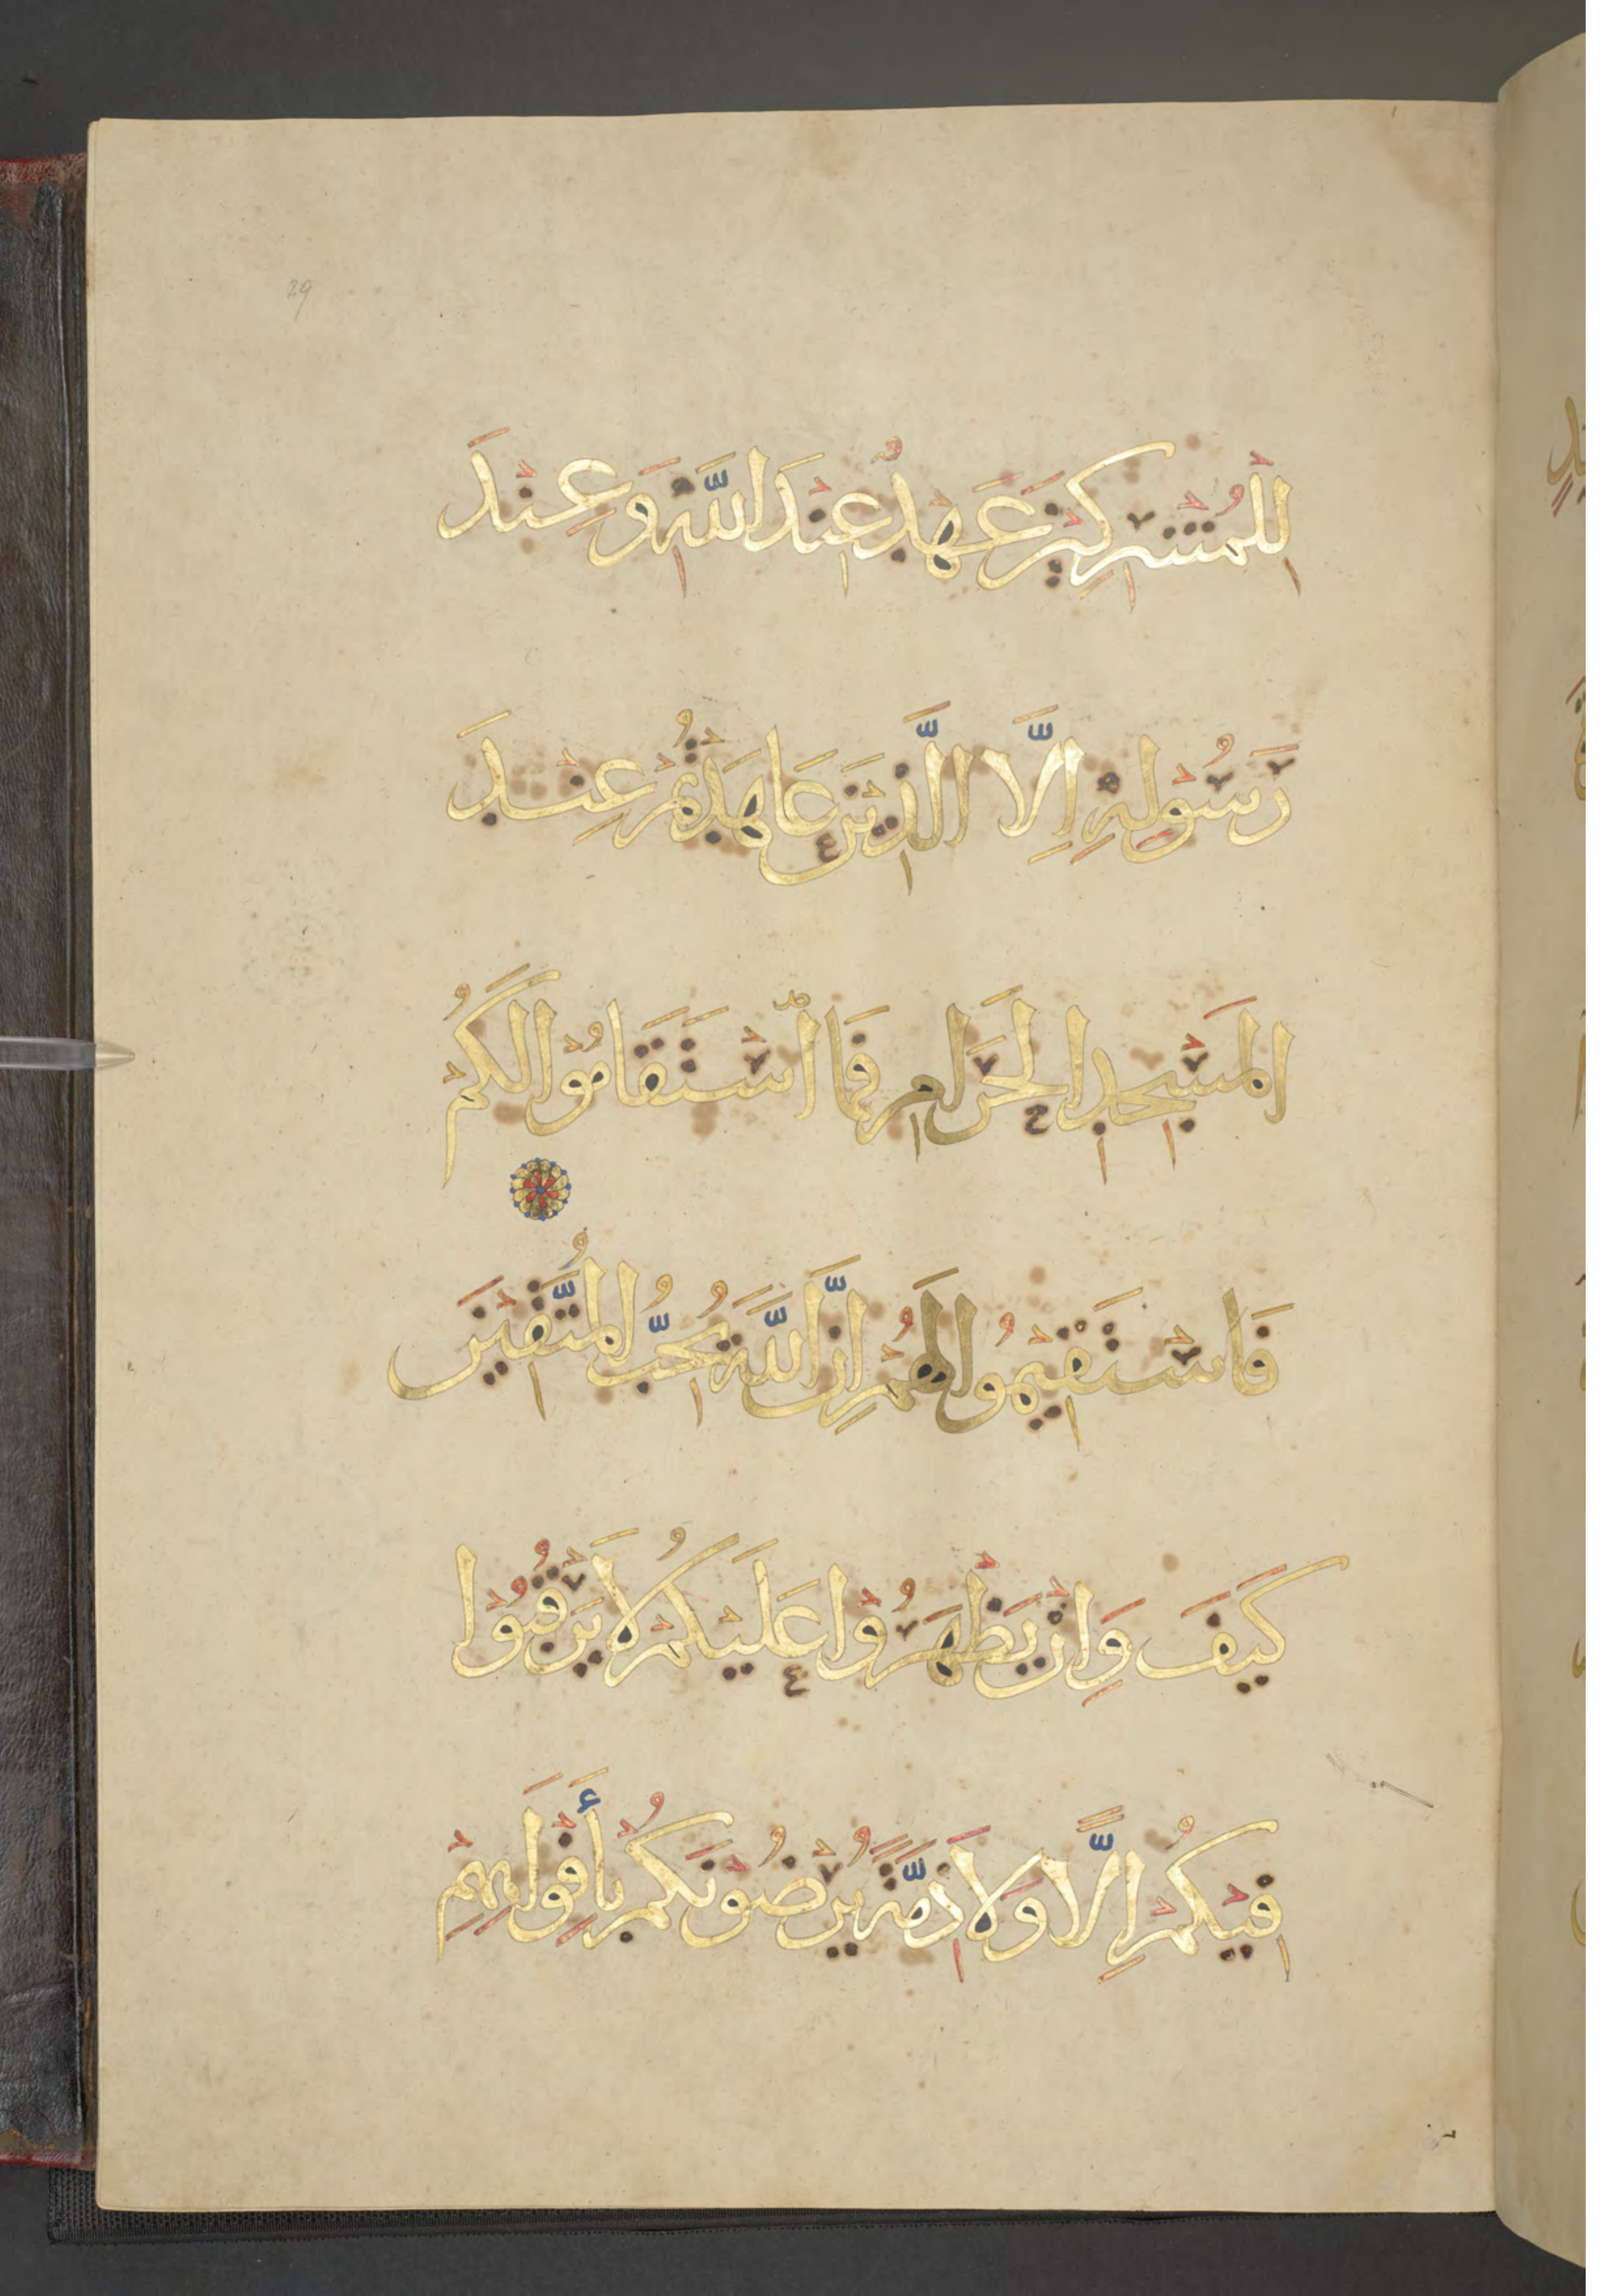 29
لِلْمُشْرِكِينَ عَهْدٌ عِنْدَ اللَّهِ وَعِنْدَ
رَسُولِهِ إِلَّا الَّذِينَ عَاهَدْتُمْ عِنْدَ
الْمَسْجِدِ الْحَرَامِ فَمَا اسْتَقَامُوا لَكُمْ
فَاسْتَقِيمُوا لَهُمْ إِنَّ اللَّهَ يُحِبُّ الْمُتَّقِينَ
كَيْفَ وَإِنْ يَظْهَرُوا عَلَيْكُمْ لَا يَرْقُبُوا
فِيكُمْ إِلًّا وَلَا ذِمَّةً يُرْضُونَكُمْ بِأَفْوَاهِهِمْ